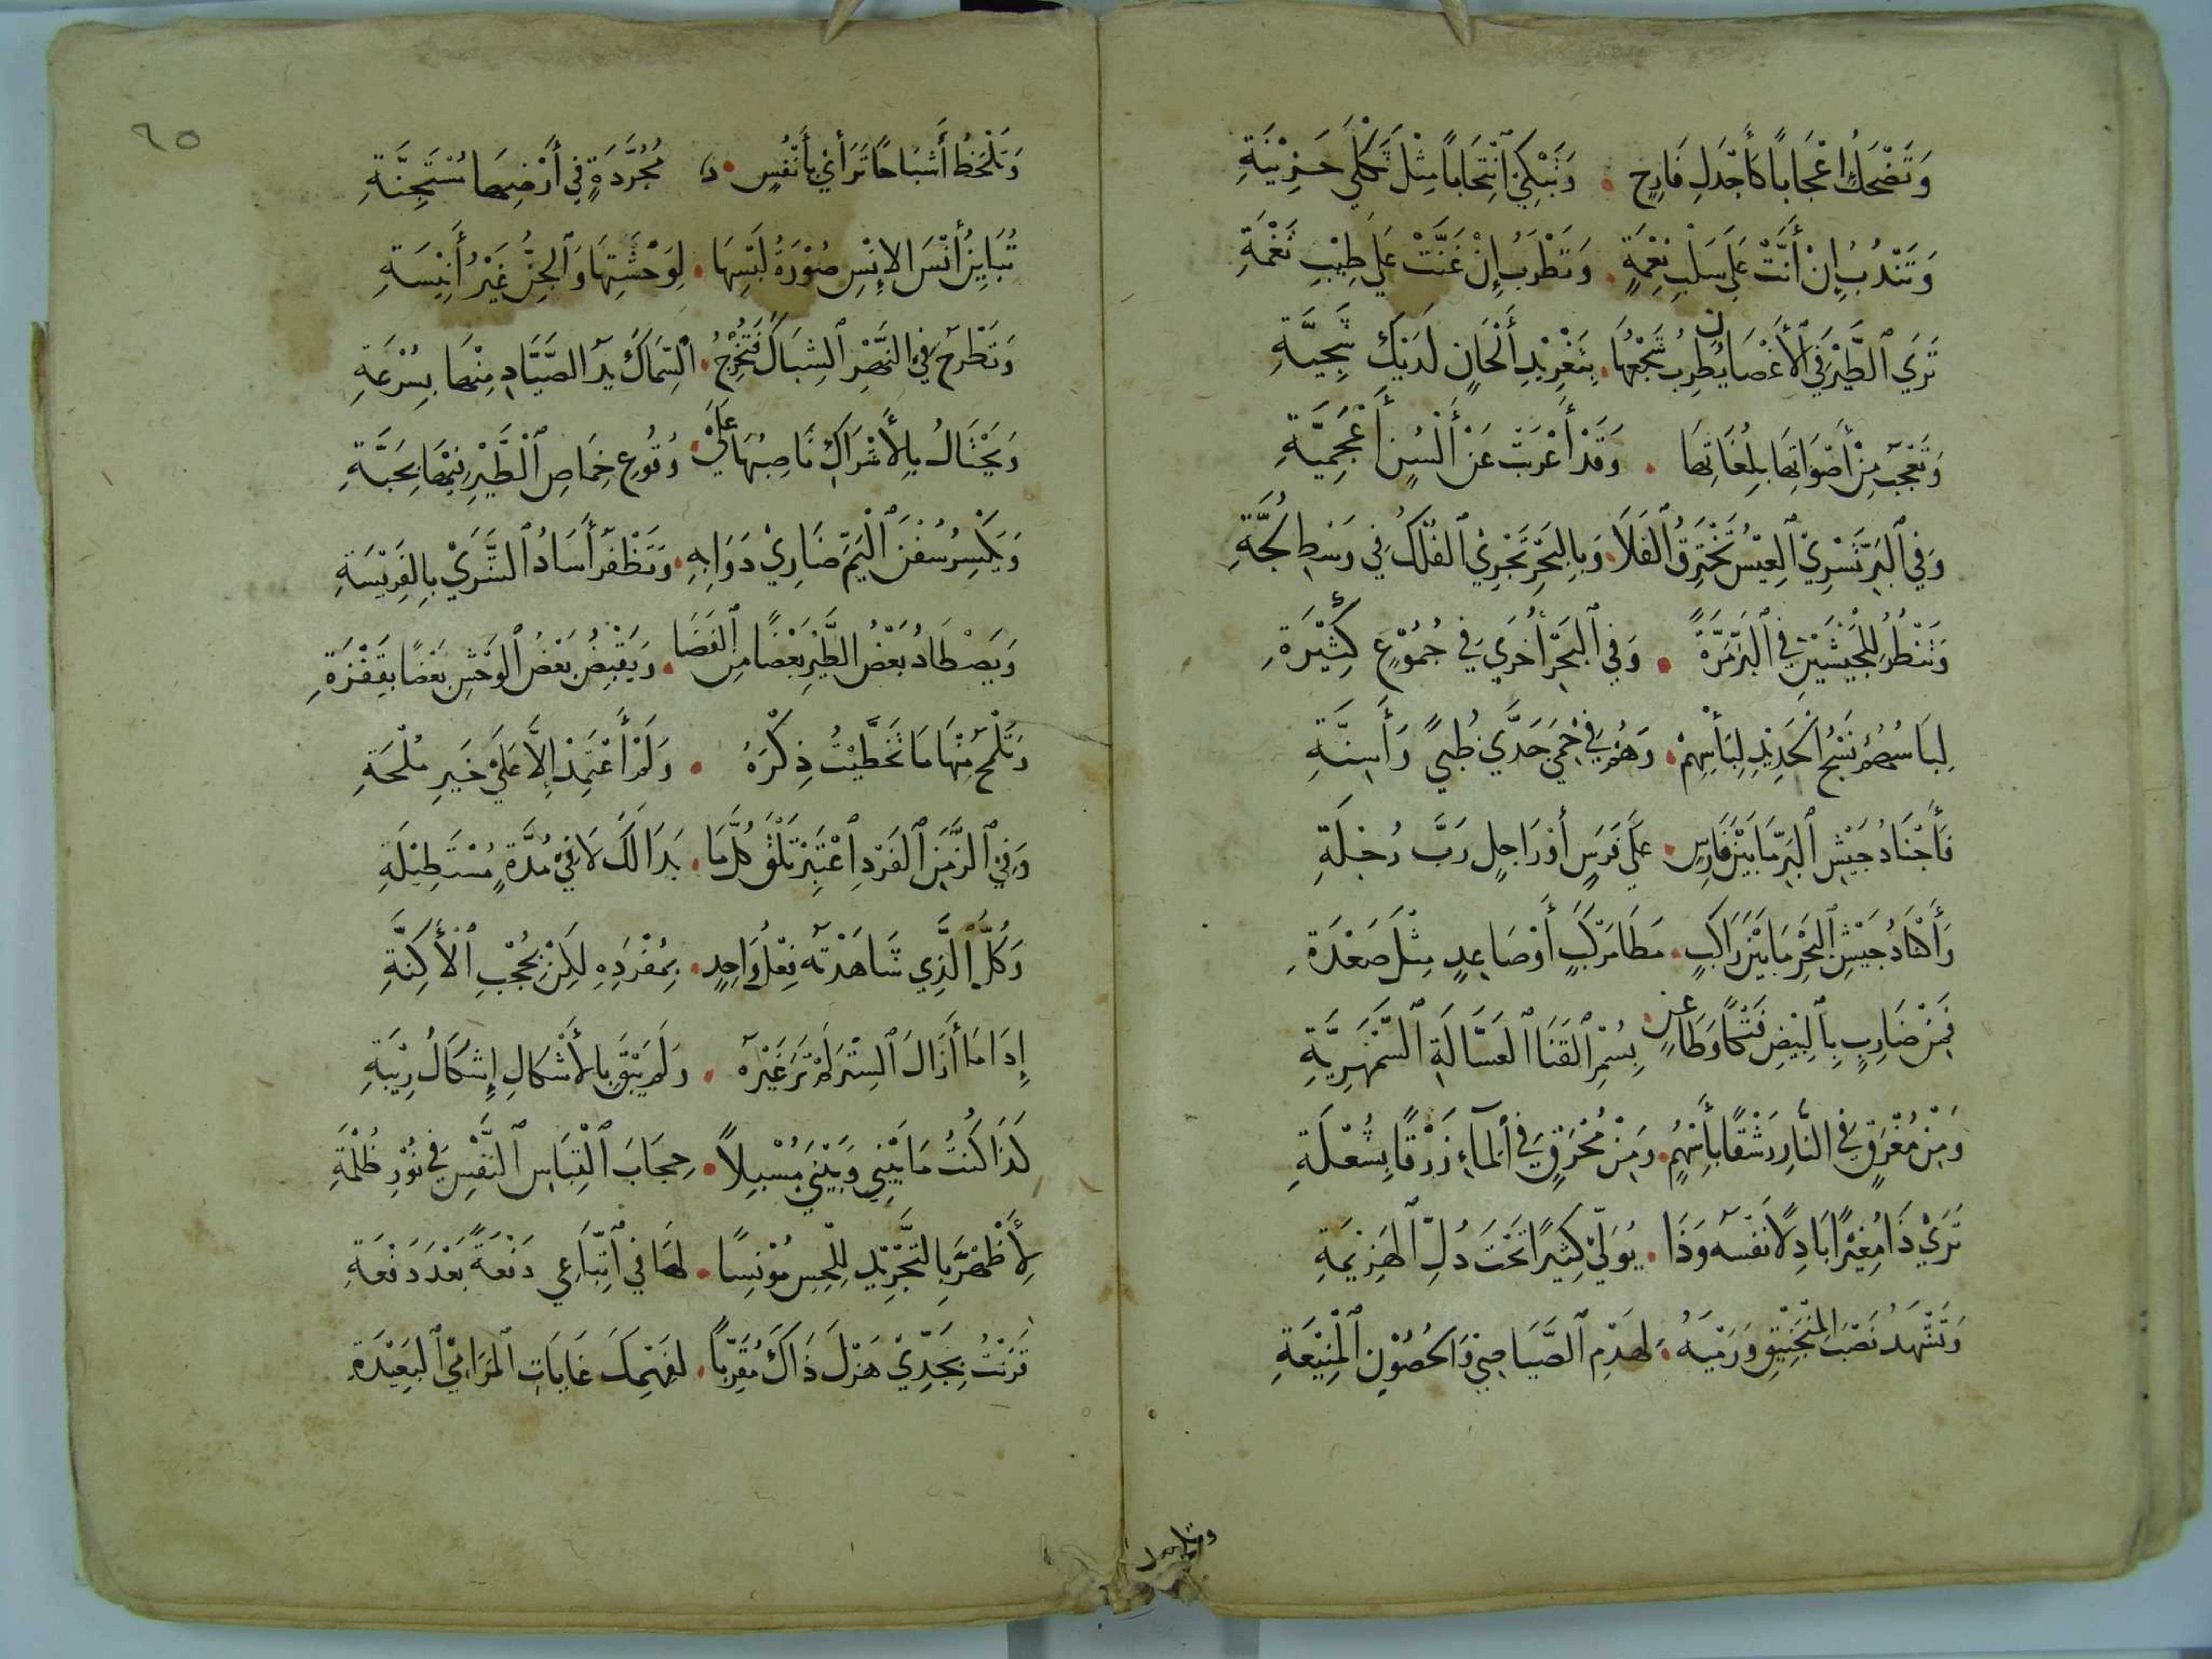 وَتَضْحَكُ إِعْجَابًا كَأَجْدَلِ فَارِحٍ . وَتَبْكِي انْتِحَابًا مِثْلَ ثَكْلَى حَزِيْنَةِ
وَتَنْدُبُ إِنْ أَنَّتْ عَلَى سَلْبِ نِعْمَةٍ . وَتَطْرَبُ إِنْ غَنَّتْ عَلَى طِيْبِ نَغْمَةِ
تَرَى الطَّيْرَ فِي الأَغْصَانِ يُطْرِبُ سَجْعُهَا . بِتَغْرِيْدِ أَلْحَانٍ لَدَيْكَ شَجِيَّةِ
وَتَعْجَبُ مِنْ أَصْوَاتِهَا بِلُغَاتِهَا . وَقَدْ أَعْرَبَتْ عَنْ أَلْسُنٍ أَعْجَمِيَّةِ
وَفِي الْبَرِّ تَسْرِي الْعِيْسُ تَخْتَرِقُ الْفَلَا . وَبِالْبَحْرِ تَجْرِي الْفُلْكُ فِي وَسْطِ لُجَّةِ
وَتَنْظُرُ لِلْجَيْشَيْنِ فِي الْبَرِّ مَرَّةً . وَفِي الْبَحْرِ أُخْرَى فِي جُمُوْعٍ كَثِيْرَةِ
لِبَاسُهُمُ نَسْجُ الْحَدِيْدِ لِبَأْسِهِمْ . وَهُمْ فِي حِمَى حَدَّيْ ظُبىً وَأَسِنَّةِ
فَأَجْنَادُ جَيْشِ الْبَرِّ مَا بَيْنَ فَارِسٍ . عَلَى فَرَسٍ أَوْ رَاجِلٍ رَبَّ رُجْلَةِ
وَأَكْنَادُ جَيْشِ الْبَحْرِ مَا بَيْنَ رَاكِبٍ . مَطَا مَرْكَبٍ أَوْ صَاعِدٍ مِثْلَ صَعْدَةِ
فَمِنْ ضَارِبٍ بِالْبِيْضِ فَتْكًا وَطَاعِنٍ . بِسُمْرِ الْقَنَا الْعَسَّالَةِ السَّمْهَرِيَّةِ
وَمِنْ مُغْرَقٍ فِي النَّارِ رَشْقًا بِأَسْهُمٍ . وَمِنْ مُحْرَقٍ فِي الْمَاءِ زَرْقًا بِشُعْلَةِ
تَرَى ذَا مُغِيْرًا بَاذِلًا نَفْسَهُ وَذَا . يُوَلِّي كَثِيْرًا تَحْتَ ذُلِّ الْهَزِيْمَةِ
وَتَشْهَدُ نَصْبَ الْمَنْجَنِيْقِ وَرَمْيَهُ . لِهَدْمِ الصَّيَاصِي وَالْحُصُوْنِ الْمَنِيْعَةِ
٦٥
وَتَلْحَظُ أَشْبَاحًا تَرَاأَى بِأَنْفُسٍ . مُجَرَّدَةٍ فِي أَرْضِهَا مُسْتَجِنَّةِ
تُبَايِنُ أُنْسَ الإِنْسِ صُوْرَةُ لَبْسِهَا . لِوَحْشَتِهَا وَالْجِنُّ غَيْرُ أَنِيْسَةِ
وَتَطْرَحُ فِي النَّهْرِ الشِّبَاكَ فَتُخْرِجُ . السِّمَاكَ يَدُ الصَّيَّادِ مِنْهَا بِسُرْعَةِ
وَيَحْتَالُ بِالأَشْرَاكِ نَاصِبُهَا عَلَى . وُقُوعِ خِمَاصِ الْطَّيْرِ فِيْهَا بِحَبَّةِ
وَيَكْسِرُ سُفْنَ الْيَمِّ ضَارِيْ دَوَابِهِ . وَتَظْفَرُ أَسَادُ الشَّرَى بِالْفَرِيْسَةِ
وَيَصْطَادُ بَعْضُ الطَّيْرِ بَعْضًا مِنَ الْفَضَا . وَيَقْبِضُ بَعْضُ الْوَحْشِ بَعْضًا بِقَفْزَةِ
وَتَلْمَحُ مِنْهَا مَا تَخَطَّيْتُ ذِكْرَهُ . وَلَمْ أَعْتَمِدْ إِلَّا عَلَى خَيرِ مُلْحَةِ
وَفِي الزَّمَنِ الْفَرْدِ اعْتَبِرْ تَلْقَ كُلَّ مَا . بَدَا لَكَ لَا فِيْ مُدَّةٍ مُسْتَطِيْلَةِ
وَكُلُّ الَّذِي شَاهَدْتَهُ فِعْلُ وَاحِدٍ . بِمُفْرَدِهِ لَكِنْ بِحُجْبِ الْأَكِنَّةِ
إِذَا مَا أَزَالَ السِّتْرَ لَمْ تَرَ غَيْرَهُ . وَلَمْ يَبْقَ بِالأَشْكَالِ إِشْكَالُ رِيْبَةِ
كَذَا كُنْتُ مَا بَيْنِي وَبَيْنِي مُسْبِلًا . حِجَابَ الْتِبَاسِ النَّفْسِ فِي نُوْرِ ظُلْمَةِ
لأَظْهَرَ بِالتَّجْرِيْدِ لِلْحِسِّ مُوْنِسًا . لَهَا فِي اتِّبَاعِي دَفْعَةً بَعْدَ دَفْعَةِ
قَرَنْتُ بِجَدِّيْ هَزْلَ ذَاكَ مُقَرِّبًا . لِفَهْمِكَ غَايَاتِ الْمَرَامِيْ الْبَعِيْدَةِ